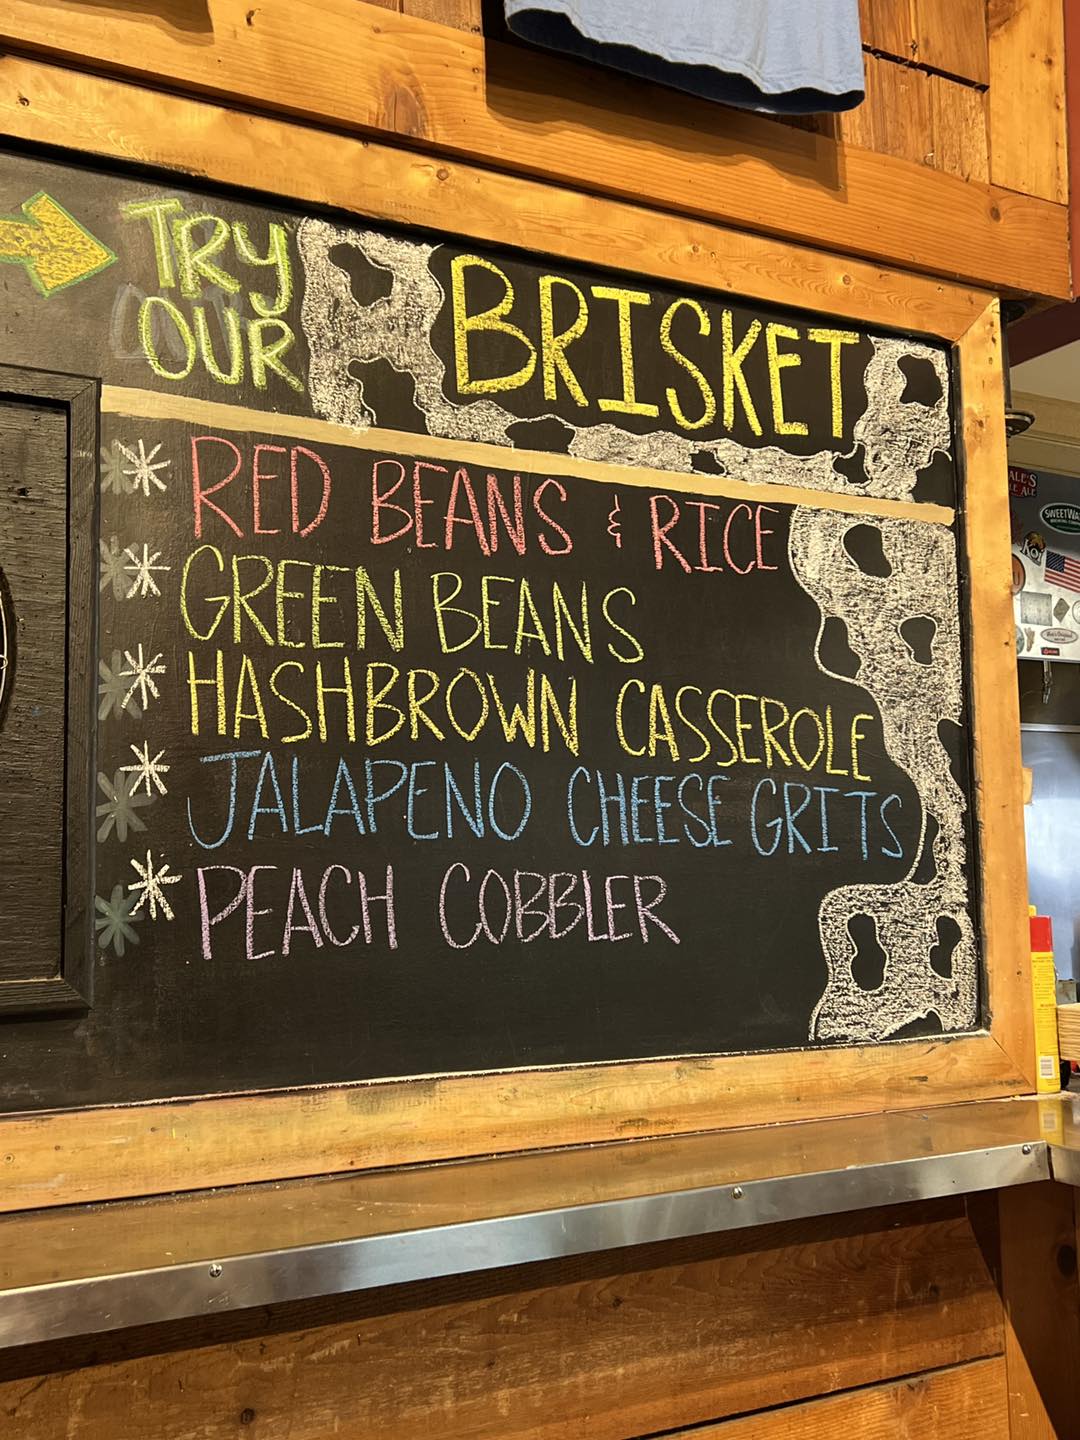 TRY
OUR
BRISKET
RED BEANS & RICE
GREEN BEANS
HASHBROWN CASSEROLE
JALAPENO CHEESE GRITS
PEACH COBBLER